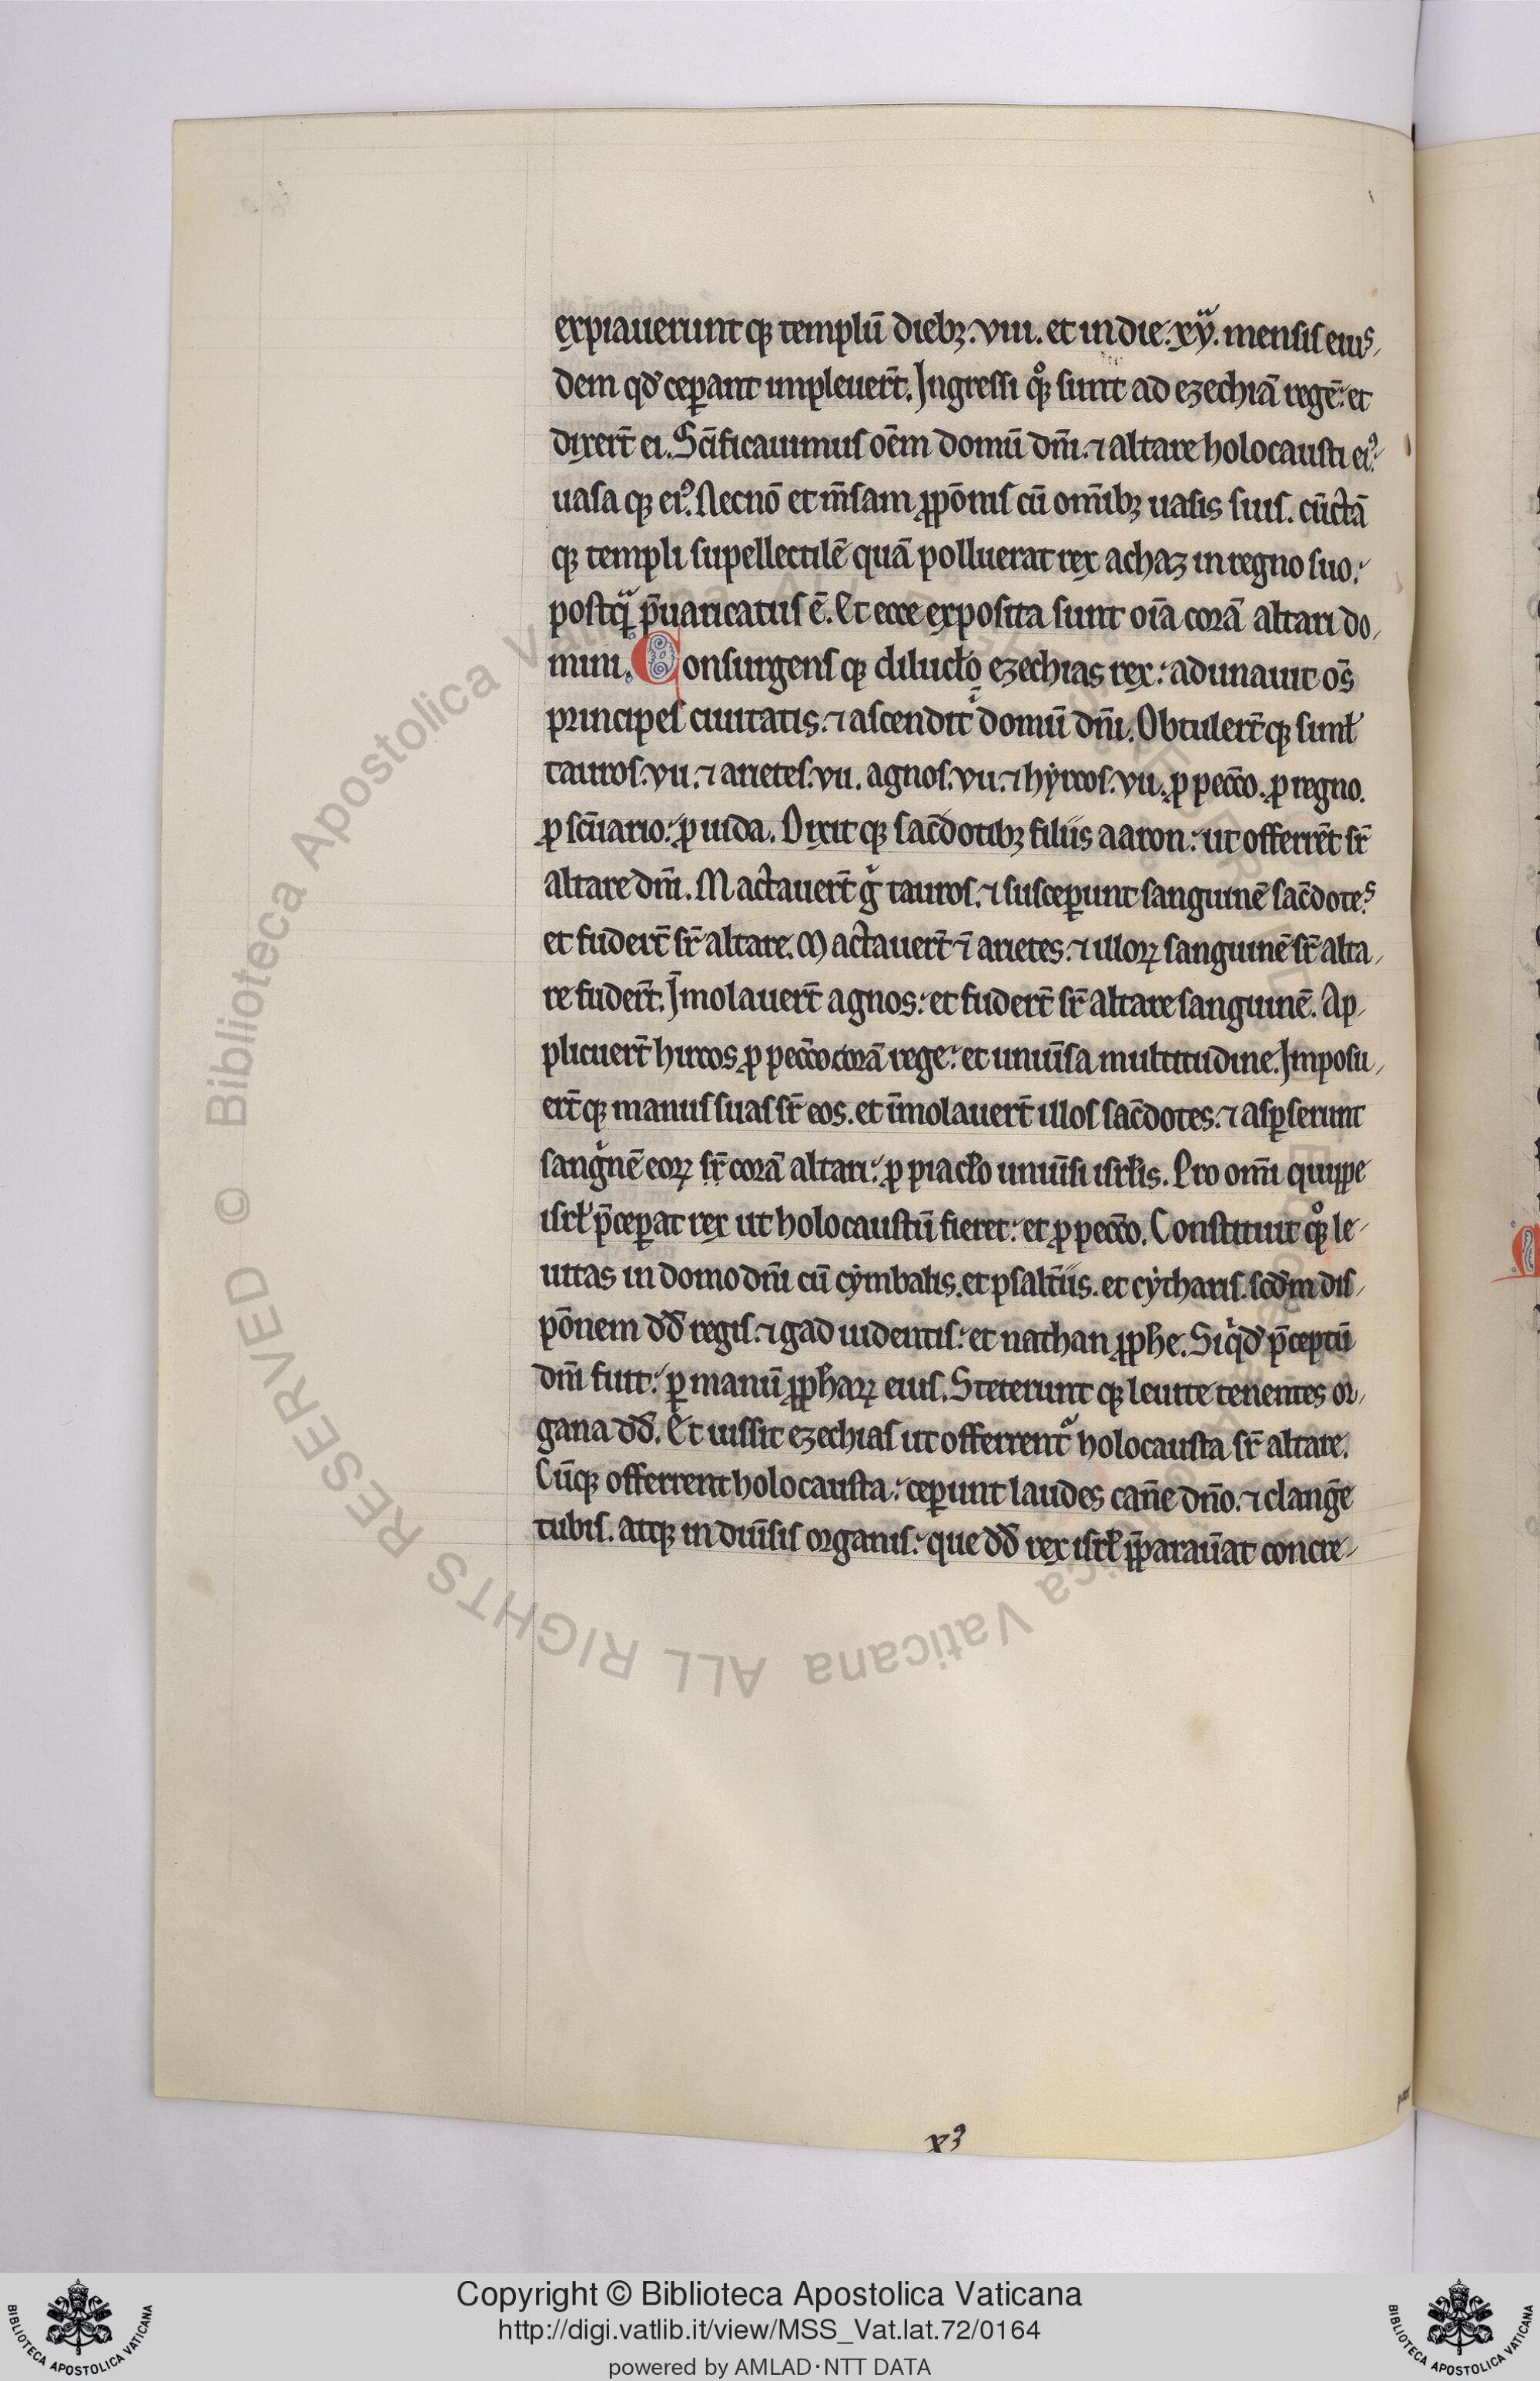 expiauerunt qꝫ templū diebꝫ .viii. et in die .xviͣ. mensis eius
dem qđ ceꝑant impleuer̄t. Ingressi qͦꝫ sunt ad ezechiā regē: et
dixer̄t ei. Sc̄ificauimus oēm domū dn̄i. ⁊ altare holocausti eiꝰ.
uasa qꝫ eiꝰ. Necnō et m̄sam ꝓpōnis cū om̄ibꝫ uasis suis. cūctā
qꝫ templi supellectilē quā polluerat rex achaz in regno suo.
postqͣ p̄uaricatus ē. Et ecce exposita sunt oīa corā altari do
mini. Consurgens qꝫ dilucl̄o ezechias rex: adunauit os̄
principes ciuitatis. ⁊ ascendit ⁱ domū dn̄i. Obtuler̄t qꝫ siml̄
tauros .vii. ⁊ arietes .vii. agnos .vii. ⁊ hyrcos .vii. ꝓ pecc̄o. ꝓ regno.
ꝓ sc̄uario. ꝓ iuda. Dixit qꝫ sac̄dotibꝫ filiis aaron: ut offerrēt sr̄
altare dn̄i. Mactauer̄t gͥ tauros. ⁊ susceꝑunt sanguinē sac̄dotes
et fuder̄t sr̄ altare. Mactauer̄t ⁊̄ arietes. ⁊ illoꝝ sanguinē sr̄ alta
re fuder̄t. Īmolauer̄t agnos: et fuder̄t sr̄ altare sanguinē. Ap
plicuer̄t hircos ꝓ pecc̄o corā rege: et uniūsa multitudine. Imposu
er̄t qꝫ manus suas sr̄ eos. et īmolauer̄t illos sac̄dotes. ⁊ asꝑserunt
sangͥnē eoꝝ sr̄ corā altari: ꝓ piacl̄o uniūsi isrl̄is. Pro om̄i quippe
isrl̄ p̄ceꝑat rex ut holocaustū fieret: et ꝓ pecc̄o. Constituit qͦꝫ le
uitas in domo dn̄i cū cymbalis. et psalt̄iis. et cytharis. scd̄m dis
pōnem dd̄ regis. ⁊ gad uidentis: et nathan ꝓphe. Siqͥđ p̄ceptū
dn̄i fuit: ꝑ manū ꝓpħaꝝ eius. Steterunt qꝫ leuite tenentes or
gana dd̄. Et iussit ezechias ut offerrent᷑ holocausta sr̄ altare.
Cūqꝫ offerrent holocausta: ceꝑunt laudes can̄e dn̄o. ⁊ clanḡe
tubis. atqꝫ in diūsis organis: que dd̄ rex isrl̄ p̄paraūat concre
x3
© Biblioteca Apostolica Vaticana ALL RIGHTS RESERVED
Copyright © Biblioteca Apostolica Vaticana
http://digi.vatlib.it/view/MSS_Vat.lat.72/0164
powered by AMLAD·NTT DATA
BIBLIOTECA APOSTOLICA VATICANA
BIBLIOTECA APOSTOLICA VATICANA